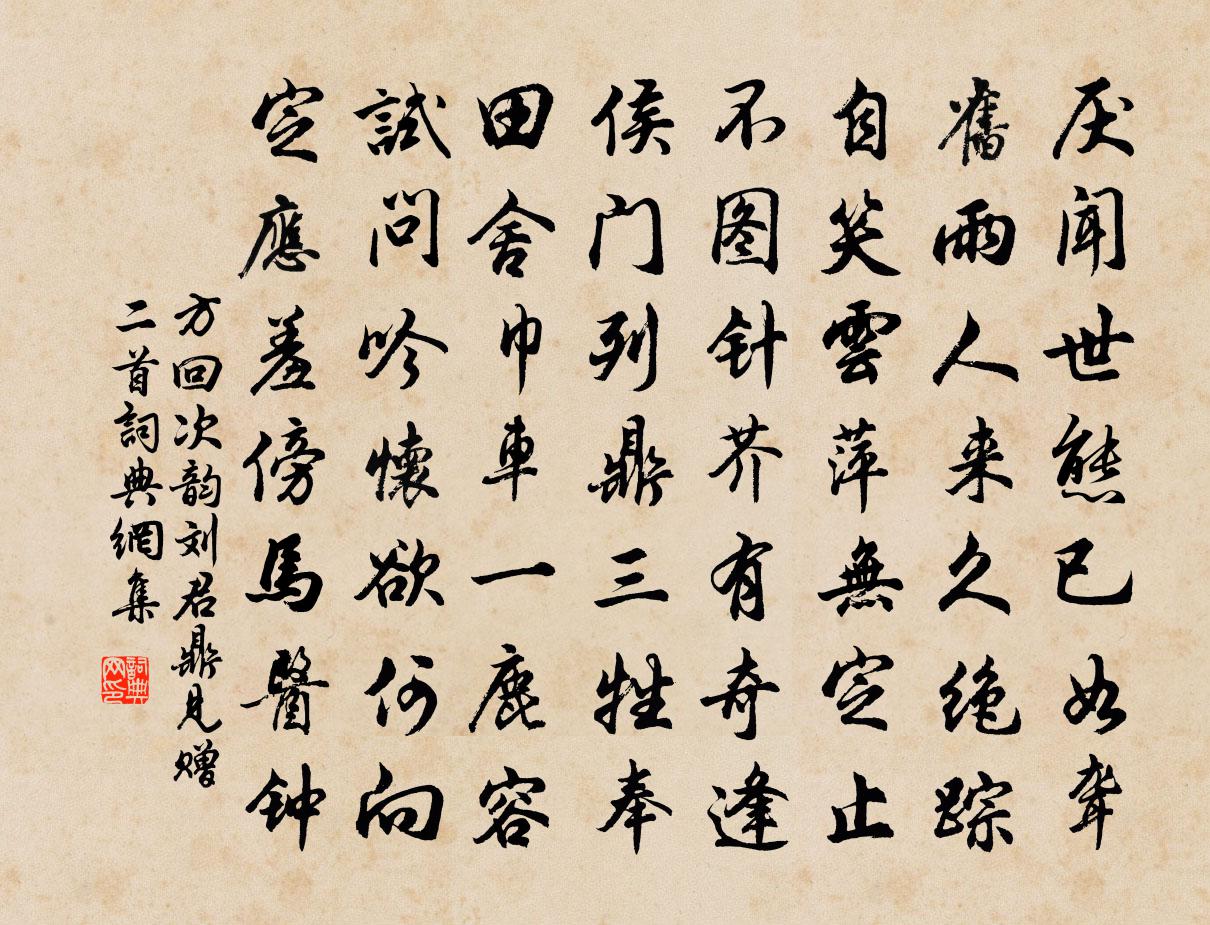 厌闻世态已如聋
舊雨人来久绝踪
自笑雲萍無定止
不图针芥有奇逢
侯门列鼎三牲奉
田舍巾車一鹿容
試问吟懷欲何向
定應羞傍馬醫钟
方回次韵刘君鼎见赠
二首詞典網集
詞典网印